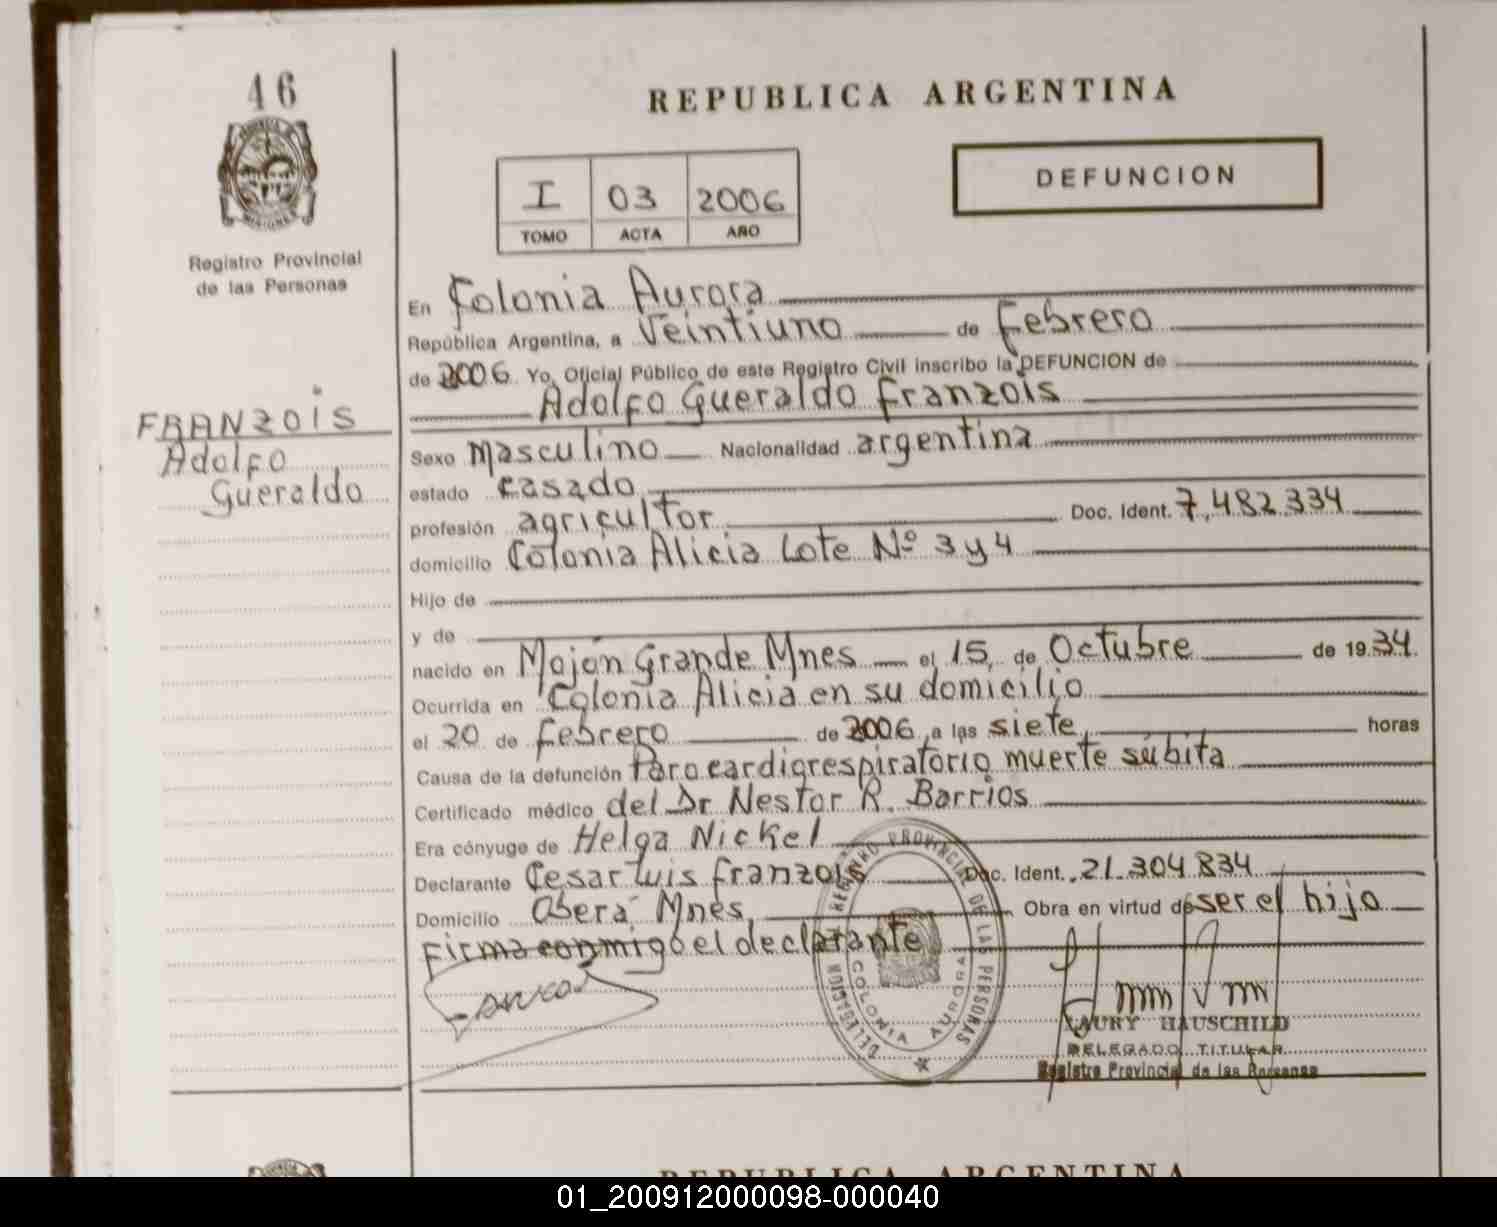 46
REPUBLICA ARGENTINA
DEFUNCION
I 03 2006
TOMO ACTA AÑO
Registro Provincial
de las Personas
FRANZOIS
Adolfo
Gueraldo
En Colonia Aurora
República Argentina, a Veintiuno de Febrero
de 2006 Yo, Oficial Público de este Registro Civil inscribo la DEFUNCION de
Adolfo Gueraldo Franzois
Sexo Masculino Nacionalidad argentina
estado casado
profesión agricultor Doc. Ident. 7.482.334
domicilio Colonia Alicia Lote Nº 3 y 4
Hijo de
y de
nacido en Mojón Grande Mnes el 15 de Octubre de 1934.
Ocurrida en Colonia Alicia en su domicilio
el 20 de Febrero de 2006, a las siete horas
Causa de la defunción Paro cardiorespiratorio muerte súbita
Certificado médico del Dr Nestor R. Barrios
Era cónyuge de Helga Nickel
Declarante Cesar Luis Franzois Doc. Ident. 21.304.834
Domicilio Oberá Mnes, Obra en virtud de ser el hijo
Firma conmigo el declarante
DELEGACION REGISTRO PROVINCIAL DE LAS PERSONAS
COLONIA AURORA
LAURY HAUSCHILD
DELEGADO TITULAR
Registro Provincial de las Personas
REPUBLICA ARGENTINA
01_200912000098-000040